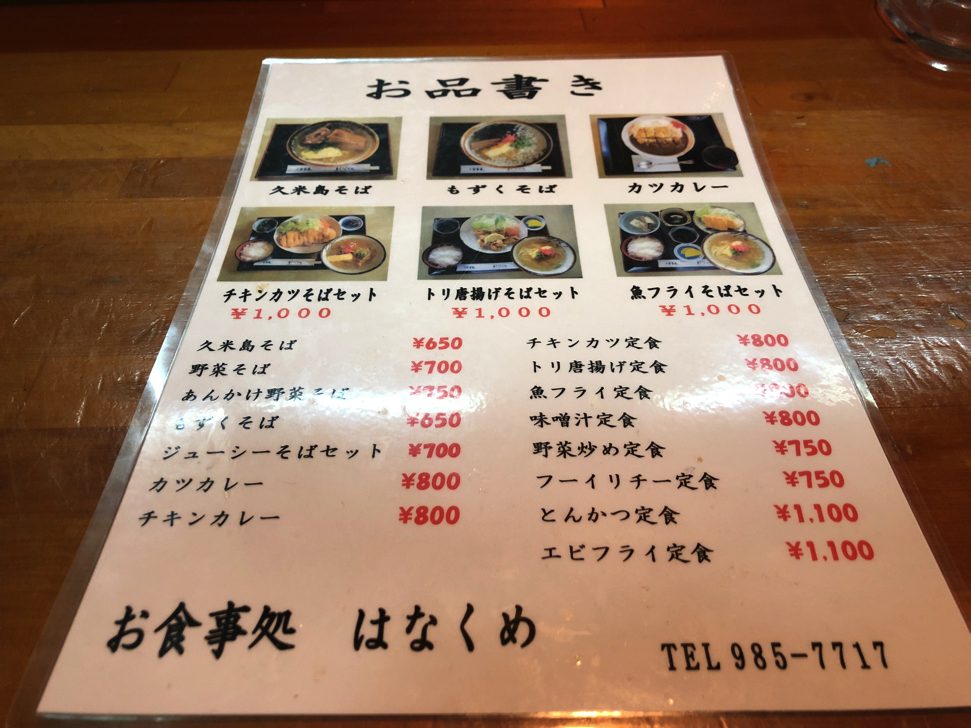 お品書き
久米島そば もずくそば カツカレー
チキンカツそばセット トリ唐揚げそばセット 魚フライそばセット
¥1,000 ¥1,000 ¥1,000
久米島そば ¥650
野菜そば ¥700
あんかけ野菜そば ¥750
もずくそば ¥650
ジューシーそばセット ¥700
カツカレー ¥800
チキンカレー ¥800
チキンカツ定食 ¥800
トリ唐揚げ定食 ¥800
魚フライ定食
味噌汁定食 ¥800
野菜炒め定食 ¥750
フーイリチー定食 ¥750
とんかつ定食 ¥1,100
エビフライ定食 ¥1,100
お食事処 はなくめ
TEL 985-7717